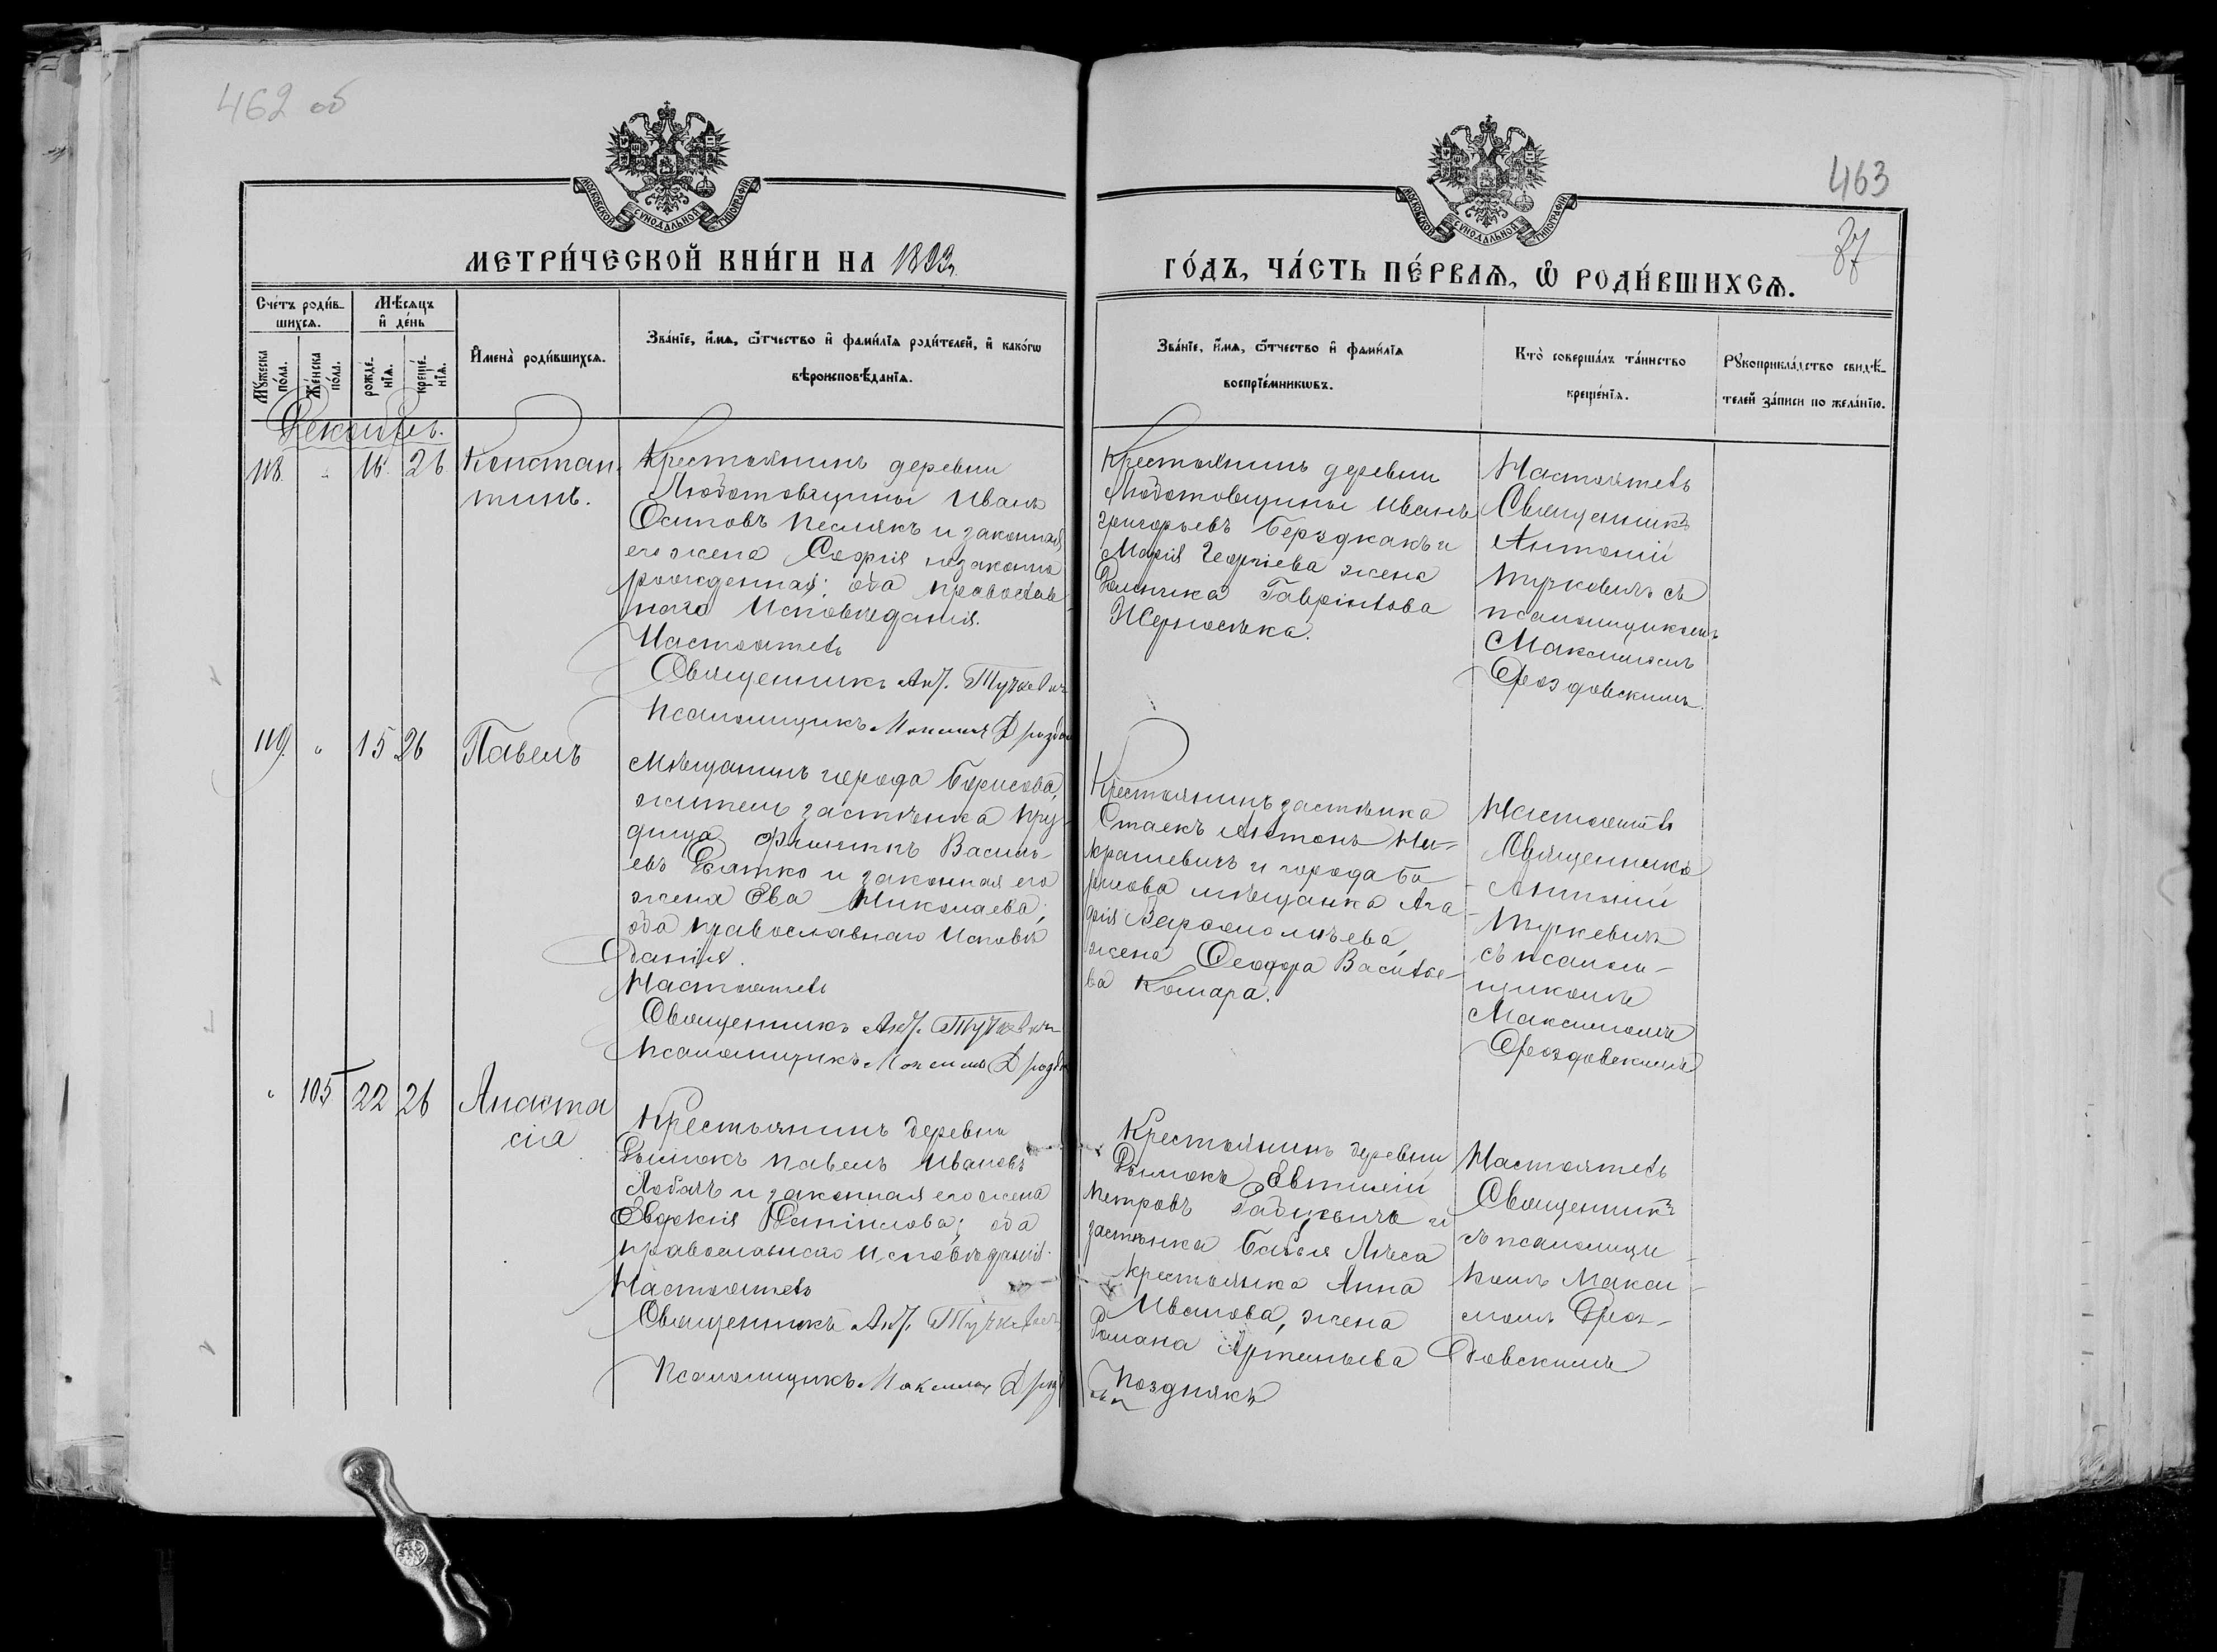 462 об
463
37
МОСКОВСКОЙ СУНОДАЛЬНОЙ ТИПОГРАФІИ
МОСКОВСКОЙ СУНОДАЛЬНОЙ ТИПОГРАФІИ
МЕТРИ́ЧЕСКОЙ КНИ́ГИ НА 1893
ГО́ДЪ, ЧА́СТЬ ПЕ́РВАѦ, Ѽ РОДИ́ВШИХСѦ.
Сче́тъ роди́в-
шихсѧ.
Мѣ́сяцъ
и҆ де́нь
Мꙋ́жеска по́ла.
Же́нска по́ла.
рожде́-
нїѧ.
креще́-
нїѧ.
И҆мена̀ роди́вшихсѧ.
Зва́нїе, и҆́мѧ, ѻ҆́тчество и҆ фами́лїѧ роди́телей, и҆ како́гѡ
вѣроисповѣ́данїѧ.
Зва́нїе, и҆́мѧ, ѻ҆́тчество и҆ фами́лїѧ
воспрїе́мникѡвъ.
Кто̀ соверша́лъ та́инство
креще́нїѧ.
Рꙋкоприкла́дство свидѣ́-
телей за́писи по жела́нїю.
Декабрь.
118. " 16. 26 Констан
тинъ.
Крестьянинъ деревни
Любатовщины Иванъ
Осиповъ Песлякъ и законная
его жена Софія незаконно
рожденная; оба православ
наго Исповѣданія.
Настоятель
Священникъ Ант. Тучкевич
Псаломщикъ Максим Дроздов
Крестьянинъ деревни
Любатовщины Иванъ
Григорьевъ Берздкакъ и
Марія Георгіева жена
Доминика Гавріилова
Жерносѣка.
Настоятель
Священникъ
Антоній
Тучкевичъ съ
псаломщикомъ
Максимомъ
Дроздовскимъ.
119. " 15 26 Павелъ
Мѣщанинъ города Борисова,
житель застѣнка Пру
дища Филиппъ Василь-
евъ Евтко и законная его
жена Ева Николаева;
оба православнаго Исповѣ
данія.
Настоятель
Священникъ Ант. Тучкевич
Псаломщикъ Максим Дроздов
Крестьянинъ застѣнка
Стаекъ Антонъ
и города Бо
рисова мѣщанка Ага
фія Варфоломѣева,
жена Ѳеодора Василье-
ва Комара.
Настоятель
Священникъ
Антоній
Тучкевичъ
съ псалом-
щикомъ
Максимомъ
Дроздовскимъ
" 105 22 26 Анаста
сіа
Крестьянинъ деревни
Дымокъ Павелъ Ивановъ
Лобачъ и законная его жена
Евдокія Даніилова; оба
православнаго Исповѣданія.
Настоятель
Священникъ Ант. Тучкевич
Псаломщикъ Максим Дрозд
Крестьянинъ деревни
Дымокъ Евтихій
Петровъ Радкевичъ и
застѣнка Бабьи Лѣса
Крестьянка Анна
Иванова, жена
Романа Артемьева
Позднякъ
Настоятель
Священникъ
съ псаломщи
комъ Макси-
момъ Дроз-
довскимъ